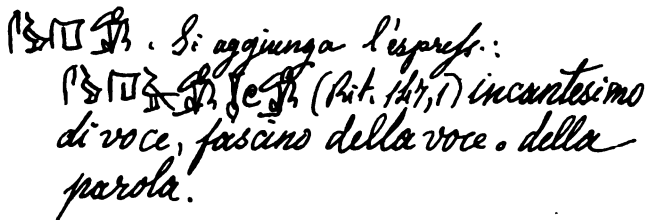 . Si aggiunga l'espress.:
(Rit. 147, 1) incantesimo
di voce, fascino della voce o della
parola.